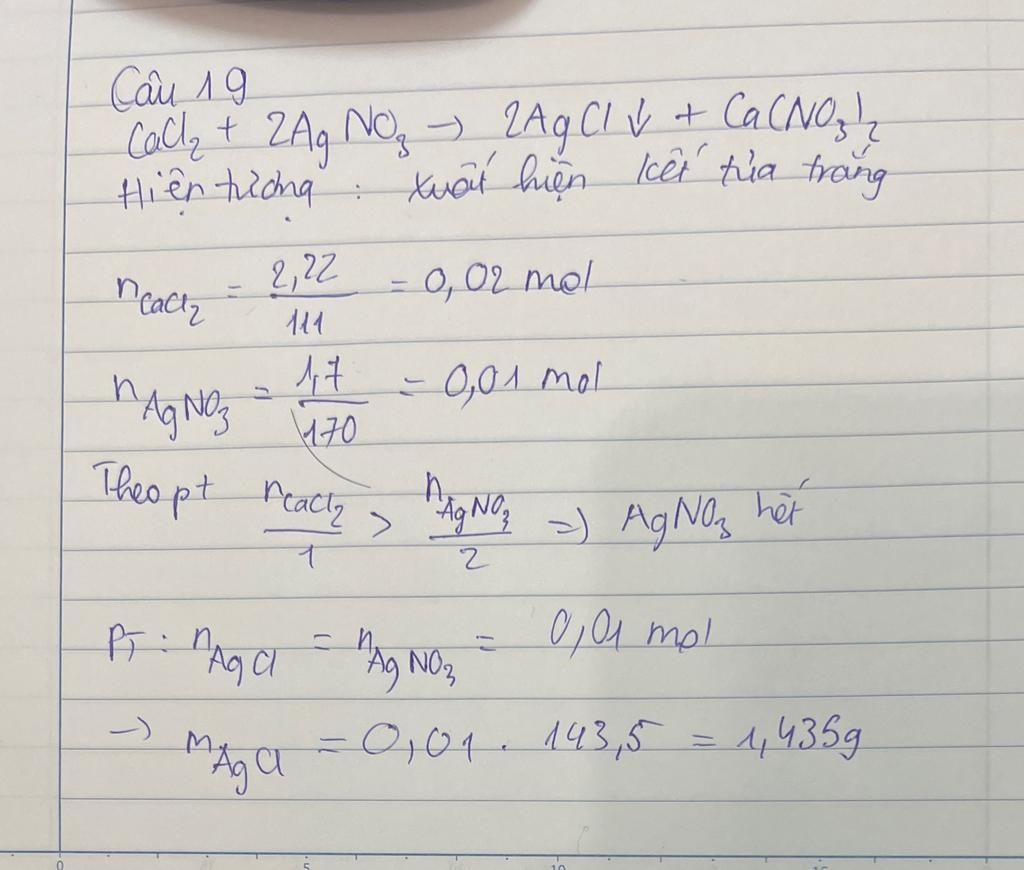 Câu 19
CaCl₂ + 2AgNO₃ → 2AgCl↓ + Ca(NO₃)₂
Hiện tượng : xuất hiện kết tủa trắng
n CaCl₂ = 2,22/111 = 0,02 mol
n AgNO₃ = 1,7/170 = 0,01 mol
Theo pt n CaCl₂/1 > n AgNO₃/2 => AgNO₃ hết
PT : n AgCl = n AgNO₃ = 0,01 mol
→ m AgCl = 0,01 . 143,5 = 1,435g
0 5 10 15